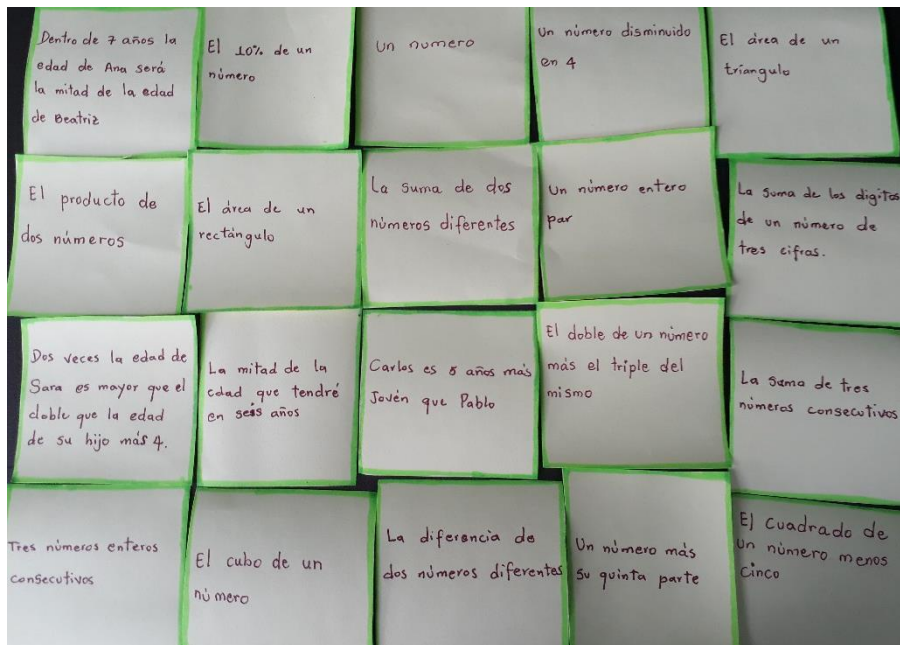 Dentro de 7 años la
edad de Ana será
la mitad de la edad
de Beatriz
El 10% de un
número
Un numero
Un número disminuido
en 4
El área de un
triángulo
El producto de
dos números
El área de un
rectángulo
La suma de dos
números diferentes
Un número entero
par
La suma de los digitos
de un número de
tres cifras.
Dos veces la edad de
Sara es mayor que el
doble que la edad
de su hijo más 4.
La mitad de la
edad que tendré
en seis años
Carlos es 5 años más
Jovén que Pablo
El doble de un número
más el triple del
mismo
La suma de tres
números consecutivos
Tres números enteros
consecutivos
El cubo de un
número
La diferencia de
dos números diferentes
Un número más
su quinta parte
El cuadrado de
un número menos
cinco